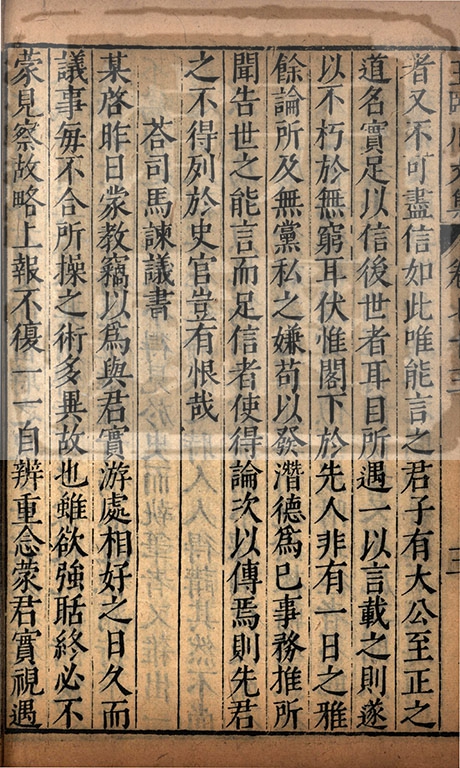 者又不可盡信如此唯能言之君子有大公至正之
道名實足以信後世者耳目所遇一以言載之則遂
以不朽於無窮耳伏惟閣下於先人非有一日之雅
餘論所及無黨私之嫌苟以發潛德爲已事務推所
聞告世之能言而足信者使得論次以傳焉則先君
之不得列於史官豈有恨哉
荅司馬諫議書
某啓昨日䝉教竊以爲與君實游處相好之日久而
議事每不合所操之術多異故也雖欲強聒終必不
䝉見察故略上報不復一一自辨重念䝉君實視遇